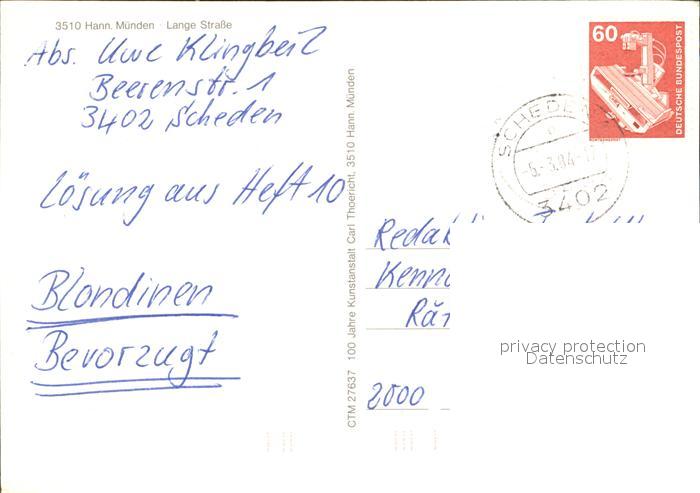 3510 Hann. Münden · Lange Straße
Abs. Uwe Klingbeil
Beerenstr. 1
3402 Scheden
Lösung aus Heft 10
Blondinen
Bevorzugt
CTM 27637 100 Jahre Kunstanstalt Carl Thoericht, 3510 Hann. Münden
60
DEUTSCHE BUNDESPOST
SCHEDEN
-5.-3.84-17
3402
Redak
Kenn
Rä
2000
privacy protection
Datenschutz